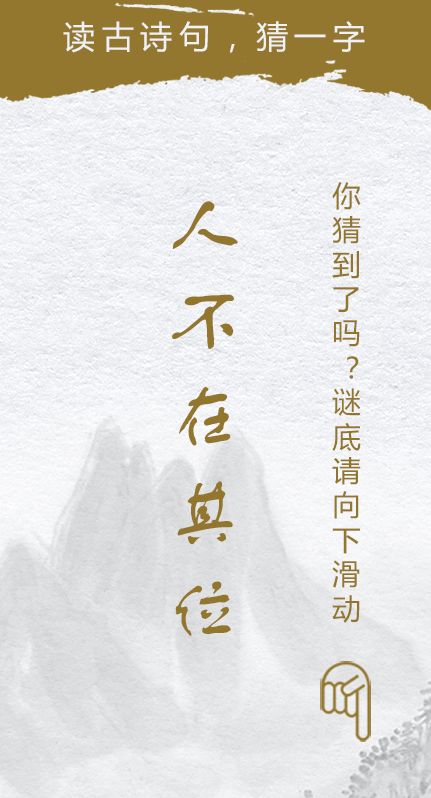 读古诗句，猜一字
你猜到了吗？谜底请向下滑动
人不在其位